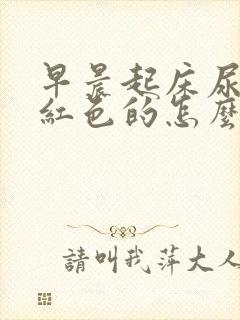 早晨起床尿
紅色的怎麼
請叫我萍大人